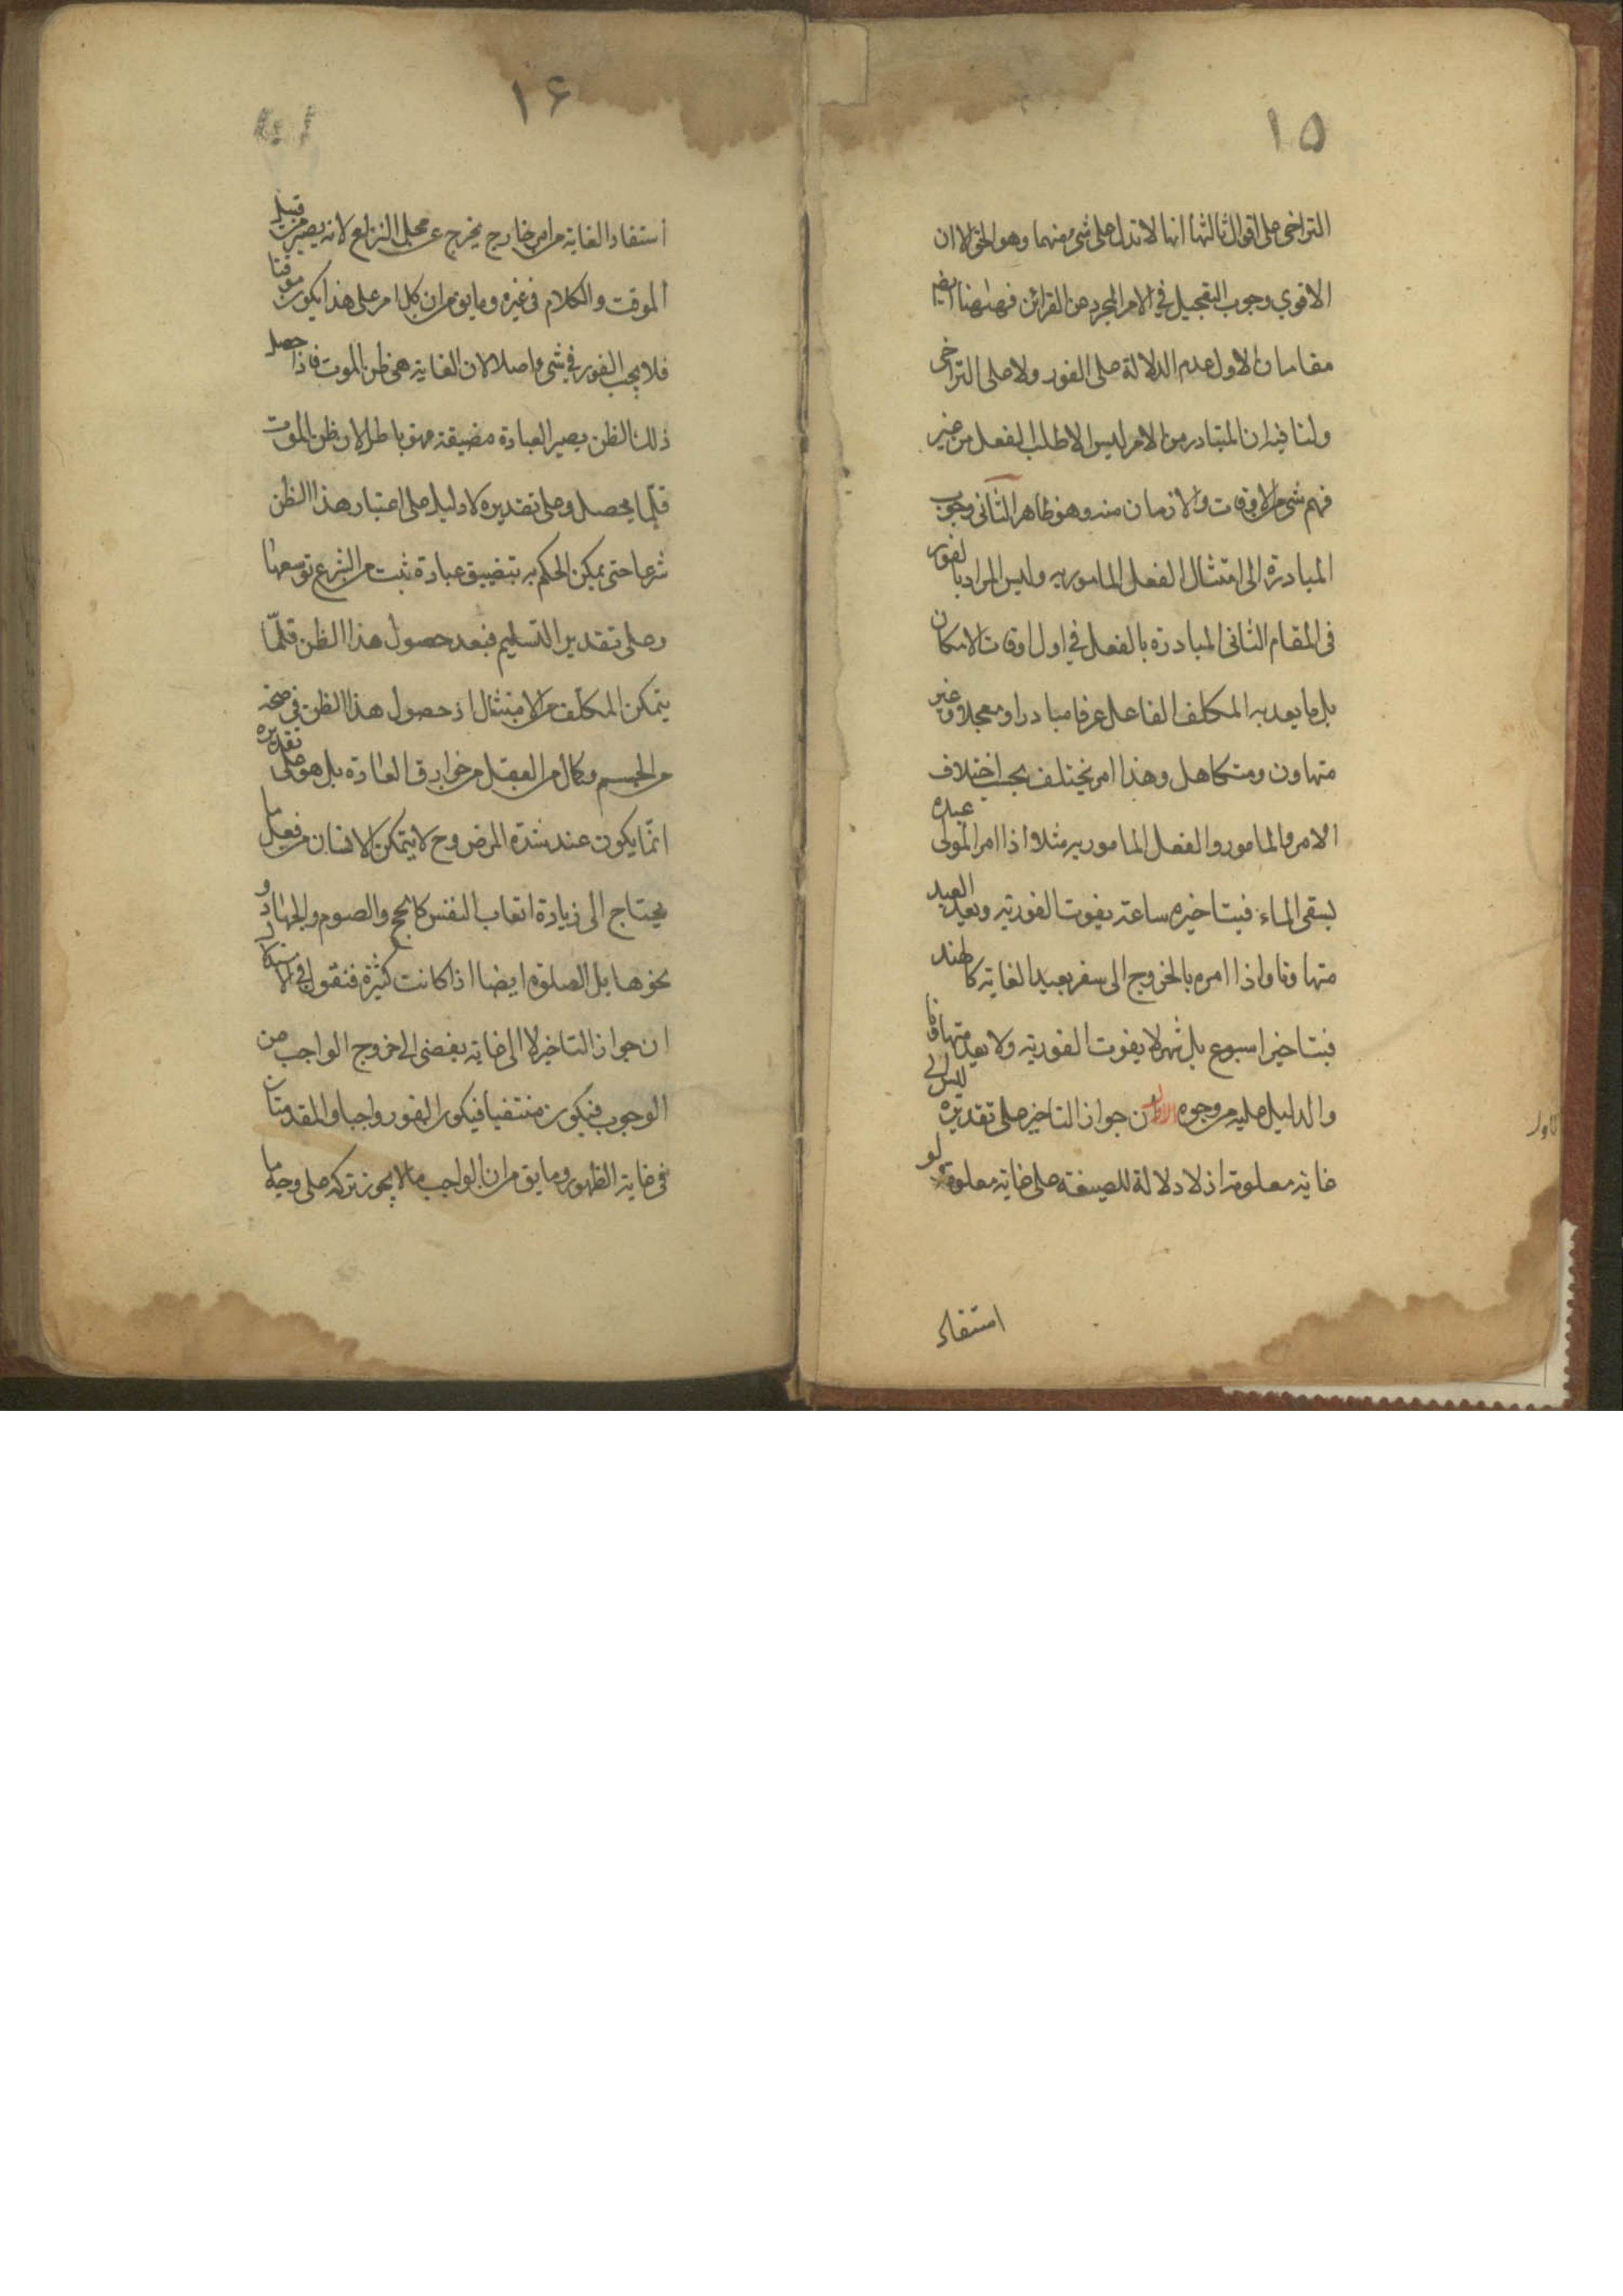 ١٥
التراخى على اقوال ثالثها انها لا تدل على شئ منهما وهو الحق الا ان
الاقوى وجوب التعجيل في الامر المجرد من القرائن فههنا ايضا
مقامان الاول عدم الدلالة على الفور ولا على التراخى
ولنا فيه ان المتبادر من الامر ليس الا طلب الفعل من غير
فهم شئ من الاوقات والازمان منه وهو ظاهر الثانى وجوب
المبادرة الى امتثال الفعل المامور به وليس المراد بالفور
فى المقام الثانى المبادرة بالفعل في اول اوقات الامكان
بل ما يعد به المكلف الفاعل عرفا مبادرا ومعجلا وغير
متهاون ومتكاهل وهذا امر يختلف بحسب اختلاف
الامر والمامور والفعل المامور به مثلا اذا امر المولى عبده
بسقى الماء فبتاخيره ساعة يفوت الفورية ويعد العبد
متهاونا واذا امره بالخروج الى سفر بعيد الغاية كالهند
فبتاخير اسبوع بل شهر لا يفوت الفورية ولا يعد متهاونا
والدليل عليه من وجوه الاول ان جواز التاخير على تقديره ليس الى
غاية معلومة اذ لا دلالة للصيغة على غاية معلومة ولو
استفاد
١۶
استفاد الغاية من امر خارج يخرج عن محل النزاع لانه يصير من قبيل
الموقت والكلام فى غيره وما يق من ان كل امر على هذا يكون موقتا
فلا يجب الفور في شئ اصلا لان الغاية هى ظن الموت فاذا حصل
ذلك الظن يصير العبادة مضيقة فهو باطل لان ظن الموت
قلّما يحصل وعلى تقديره لا دليل على اعتبار هذا الظن
شرعا حتى يمكن الحكم به بتضييق عبادة ثبت من الشرع توسعها
وعلى تقدير التسليم فبعد حصول هذا الظن قلّما
يتمكن المكلف من الامتثال اذ حصول هذا الظن فى صحة
من الجسم وكمال من العقل من خوارق العادة بل هو على تقديره
انّما يكون عند شدّة المرض وح لا يتمكن الانسان من فعل ما
يحتاج الى زيادة اتعاب النفس كالحج والصوم والجهاد و
نحوها بل الصلوة ايضا اذا كانت كثيرة فنقول في
ان جواز التاخير لا الى غاية يفضى الى خروج الواجب من
الوجوب فيكون منتفيا فيكون الفور واجبا والمقدمتان
فى غاية الظهور وما يق من ان الواجب ما لا يجوز تركه على وجه ما